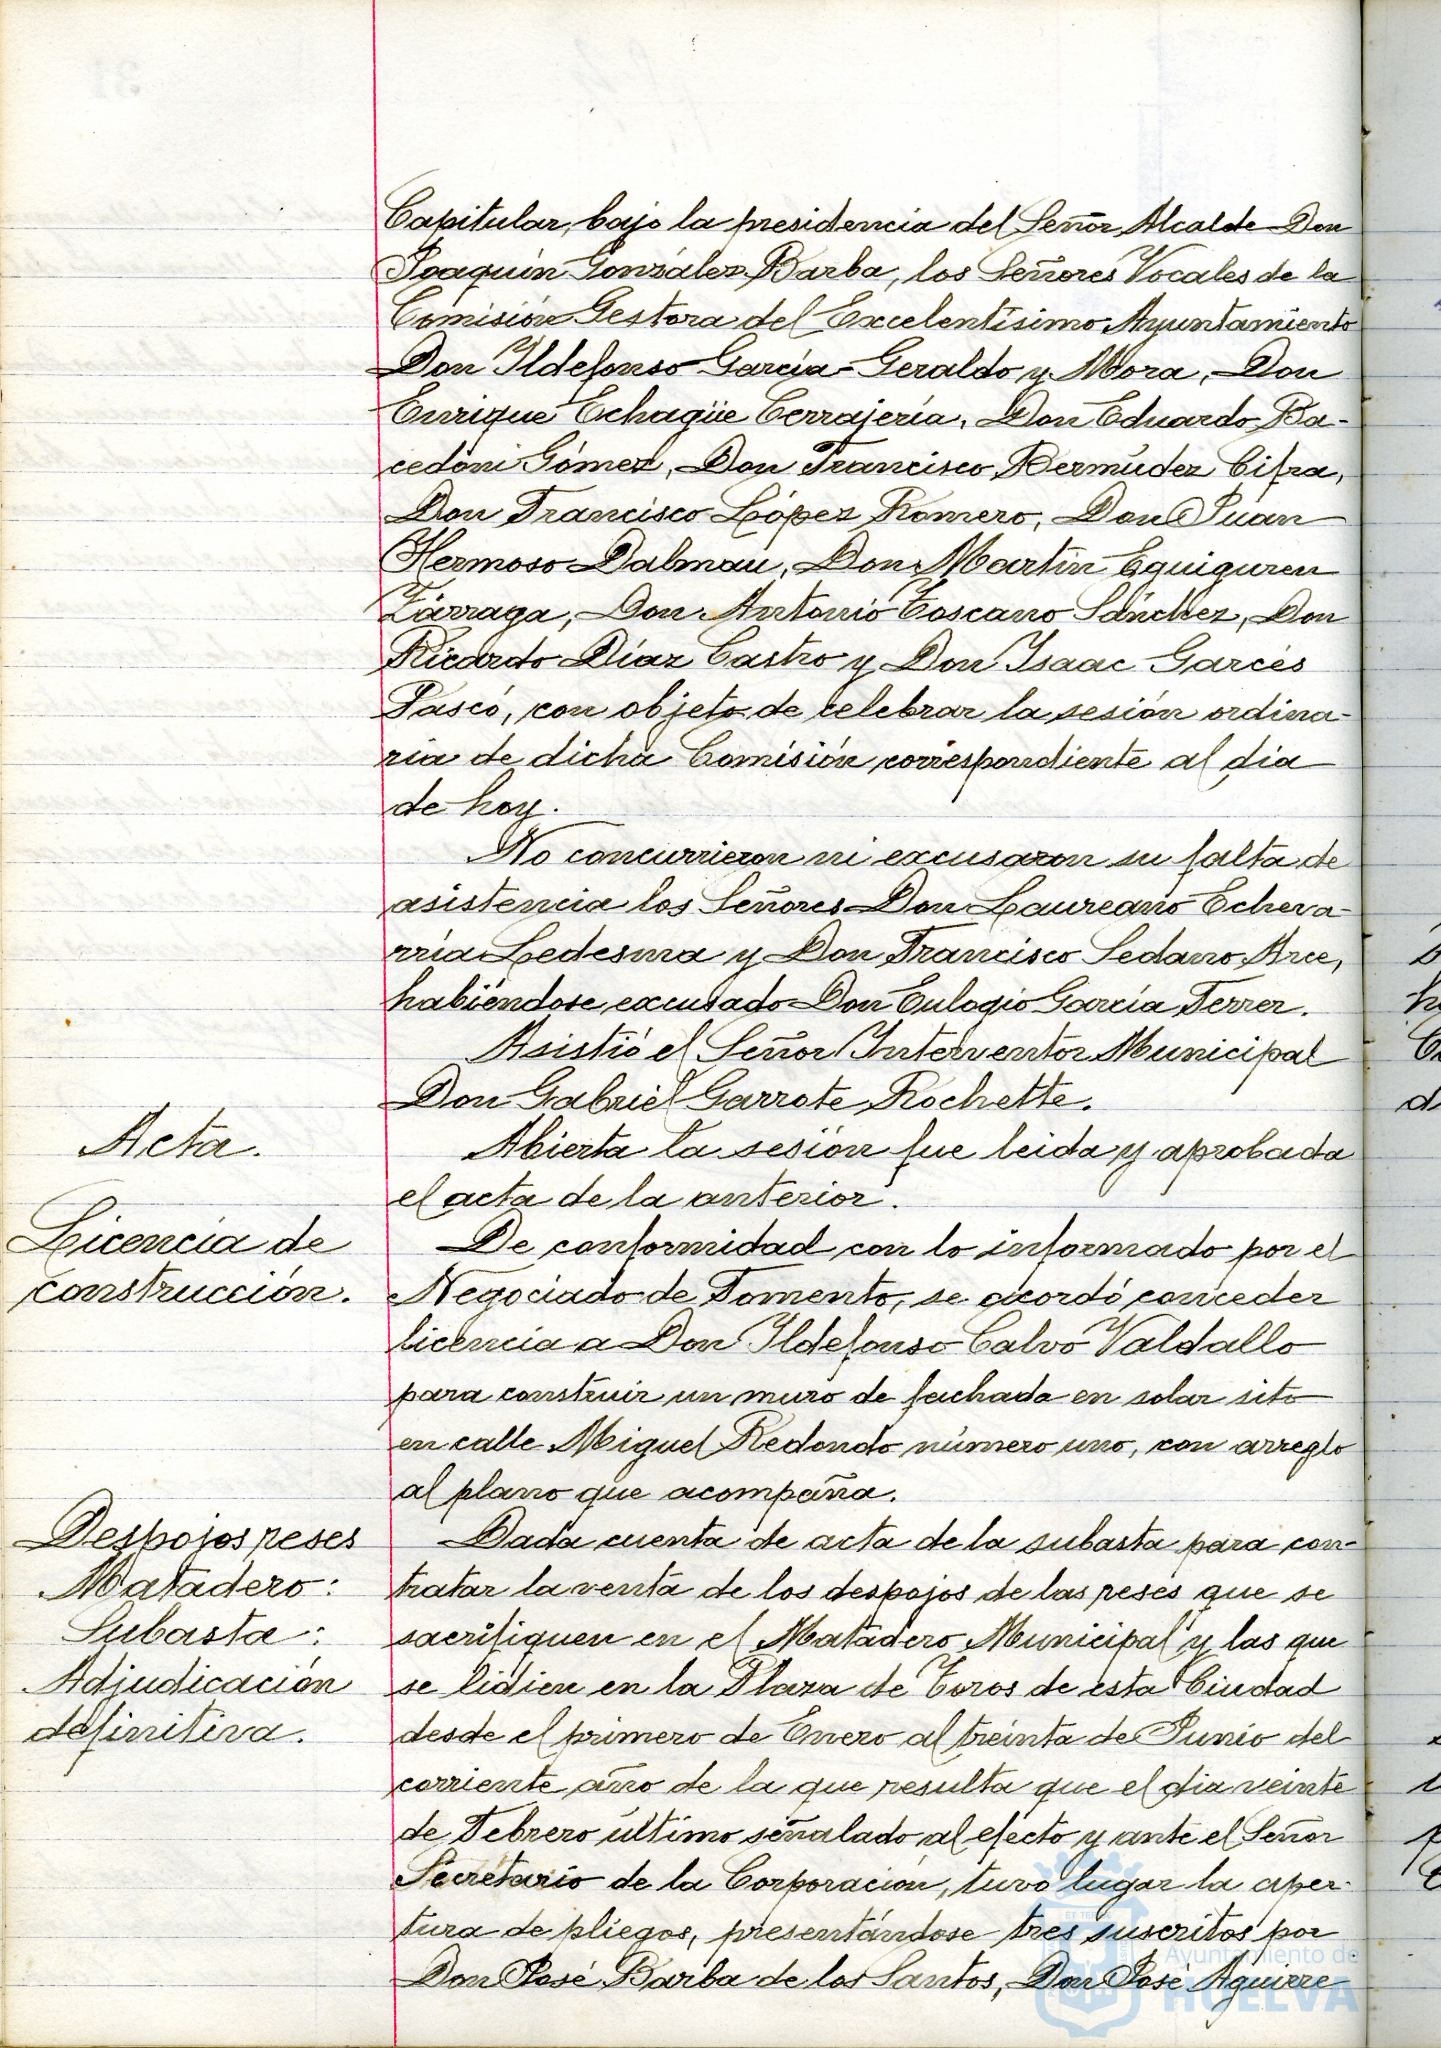 Capitular, bajo la presidencia del Señor Alcalde Don
Joaquín González Barba, los Señores Vocales de la
Comisión Gestora del Excelentísimo Ayuntamiento
Don Ildefonso García-Geraldo y Mora, Don
Enrique Echagüe Cerrajería, Don Eduardo Ba-
cedóni Gómez, Don Francisco Bermúdez Cifra,
Don Francisco López Romero, Don Juan
Hermoso Dalmau, Don Martín Eguiguren
Zárraga, Don Antonio Toscano Sánchez, Don
Ricardo Díaz Castro y Don Isaac Garcés
Pascó, con objeto de celebrar la sesión ordina-
ria de dicha Comisión correspondiente al dia
de hoy.
No concurrieron ni excusaron su falta de
asistencia los Señores Don Laureano Echeva-
rría Ledesma y Don Francisco Sedano Arce,
habiéndose excusado Don Eulogio García Ferrer.
Asistió el Señor Interventor Municipal
Don Gabriel Garrote Rochette.
Acta.
Abierta la sesión fue leida y aprobada
el acta de la anterior.
Licencia de
construcción.
De conformidad con lo informado por el
Negociado de Fomento, se acordó conceder
licencia a Don Ildefonso Calvo Valdallo
para construir un muro de fachada en solar sito
en calle Miguel Redondo número uno, con arreglo
al plano que acompaña.
Despojos reses
Matadero:
Subasta:
Adjudicación
definitiva.
Dada cuenta de acta de la subasta para con-
tratar la venta de los despojos de las reses que se
sacrifiquen en el Matadero Municipal y las que
se lidien en la Plaza de Toros de esta Ciudad
desde el primero de Enero al treinta de Junio del
corriente año de la que resulta que el dia veinte
de Febrero último señalado al efecto y ante el Señor
Secretario de la Corporación, tuvo lugar la aper-
tura de pliegos, presentándose tres suscritos por
Don José Barba de los Santos, Don José Aguirre
Ayuntamiento de
HUELVA